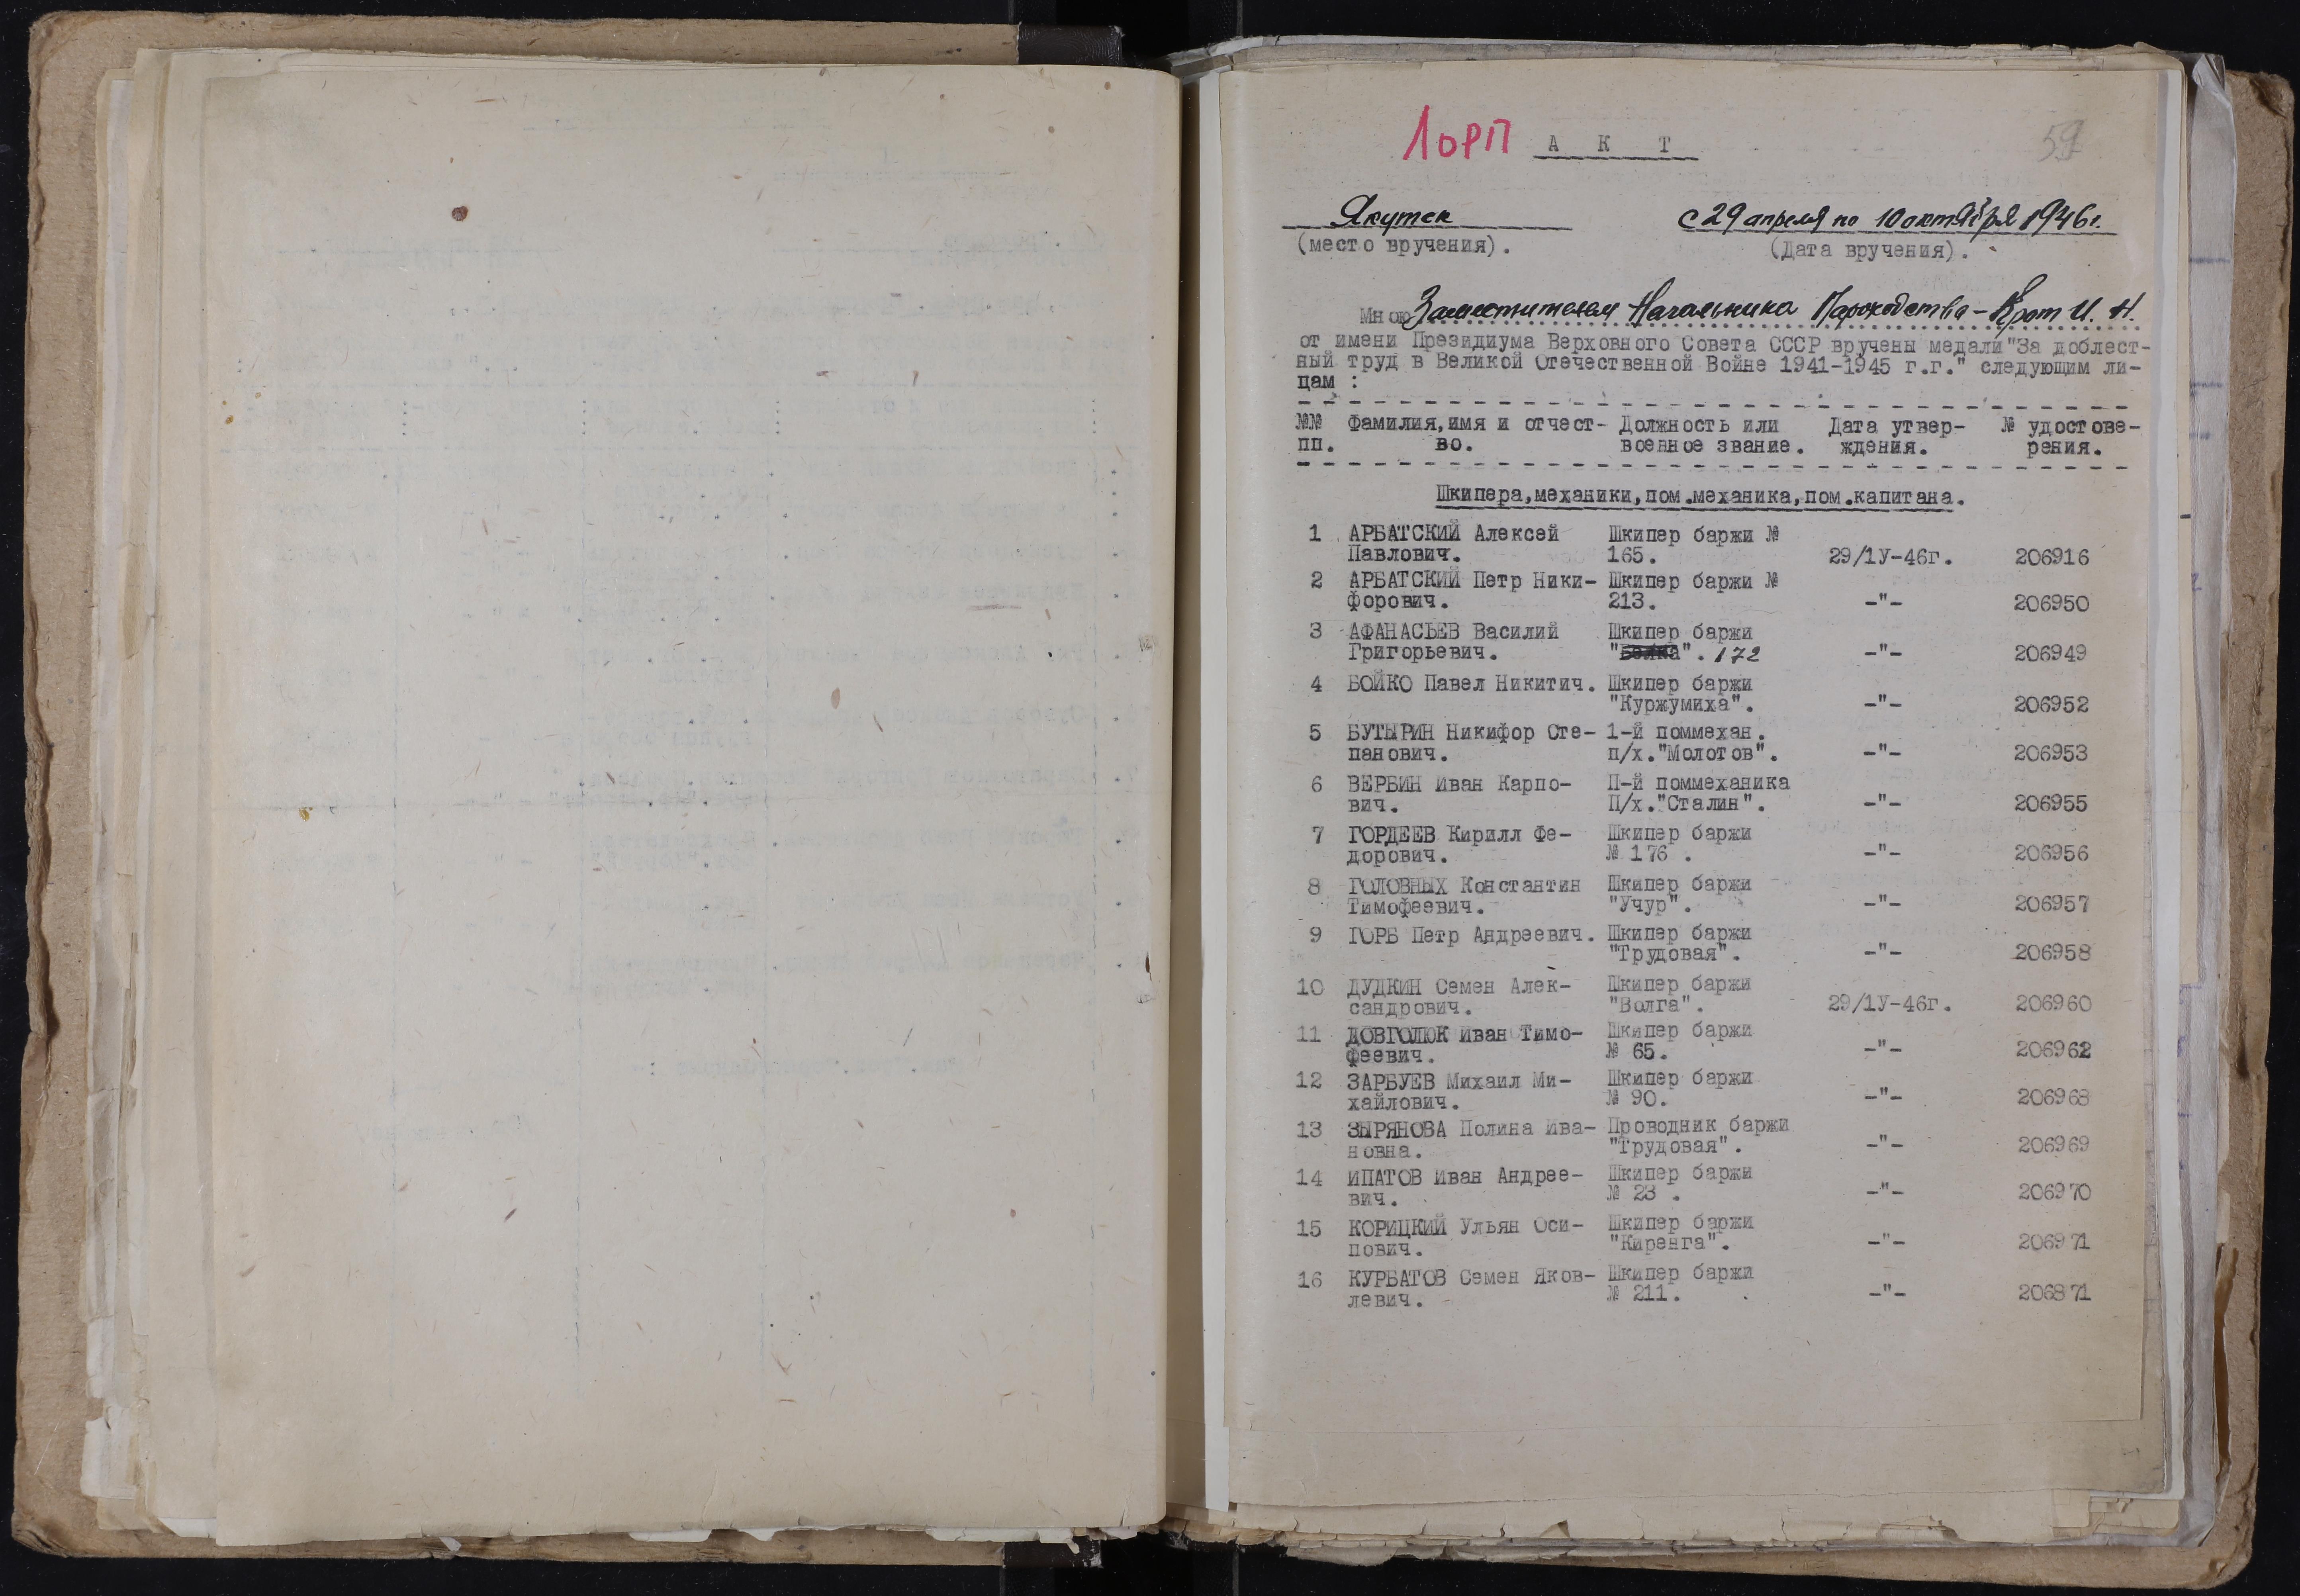 ЛОРП
А К Т
59
Якутск
с 29 апреля по 10 октября 1946 г.
(место вручения).
(Дата вручения).
Мною Заместителем Начальника Пароходства - Крот И. Н.
от имени Президиума Верховного Совета СССР вручены медали "За доблест-
ный труд в Великой Отечественной Войне 1941-1945 г.г." следующим ли-
цам :
№№ Фамилия, имя и отчест- Должность или Дата утвер- № удостове-
пп. во. военное звание. ждения. рения.
Шкипера, механики, пом.механика, пом.капитана.
1 АРБАТСКИЙ Алексей Шкипер баржи №
Павлович. 165. 29/1У-46г. 206916
2 АРБАТСКИЙ Петр Ники- Шкипер баржи №
форович. 213. -"- 206950
3 АФАНАСЬЕВ Василий Шкипер баржи
Григорьевич. " ". 172 -"- 206949
4 БОЙКО Павел Никитич. Шкипер баржи
"Куржумиха". -"- 206952
5 БУТЫРИН Никифор Сте- 1-й поммехан.
панович. п/х."Молотов". -"- 206953
6 ВЕРБИН Иван Карпо- П-й поммеханика
вич. П/х."Сталин". -"- 206955
7 ГОРДЕЕВ Кирилл Фе- Шкипер баржи
дорович. № 176 . -"- 206956
8 ГОЛОВНЫХ Константин Шкипер баржи
Тимофеевич. "Учур". -"- 206957
9 ГОРБ Петр Андреевич. Шкипер баржи
"Трудовая". -"- 206958
10 ДУДКИН Семен Алек- Шкипер баржи
сандрович. "Волга". 29/1У-46г. 206960
11 ДОВГОЛЮК Иван Тимо- Шкипер баржи
феевич. № 65. -"- 206962
12 ЗАРБУЕВ Михаил Ми- Шкипер баржи
хайлович. № 90. -"- 206968
13 ЗЫРЯНОВА Полина Ива- Проводник баржи
новна. "Трудовая". -"- 206969
14 ИПАТОВ Иван Андрее- Шкипер баржи
вич. № 23 . -"- 206970
15 КОРИЦКИЙ Ульян Оси- Шкипер баржи
пович. "Киренга". -"- 206971
16 КУРБАТОВ Семен Яков- Шкипер баржи
левич. № 211. -"- 206871